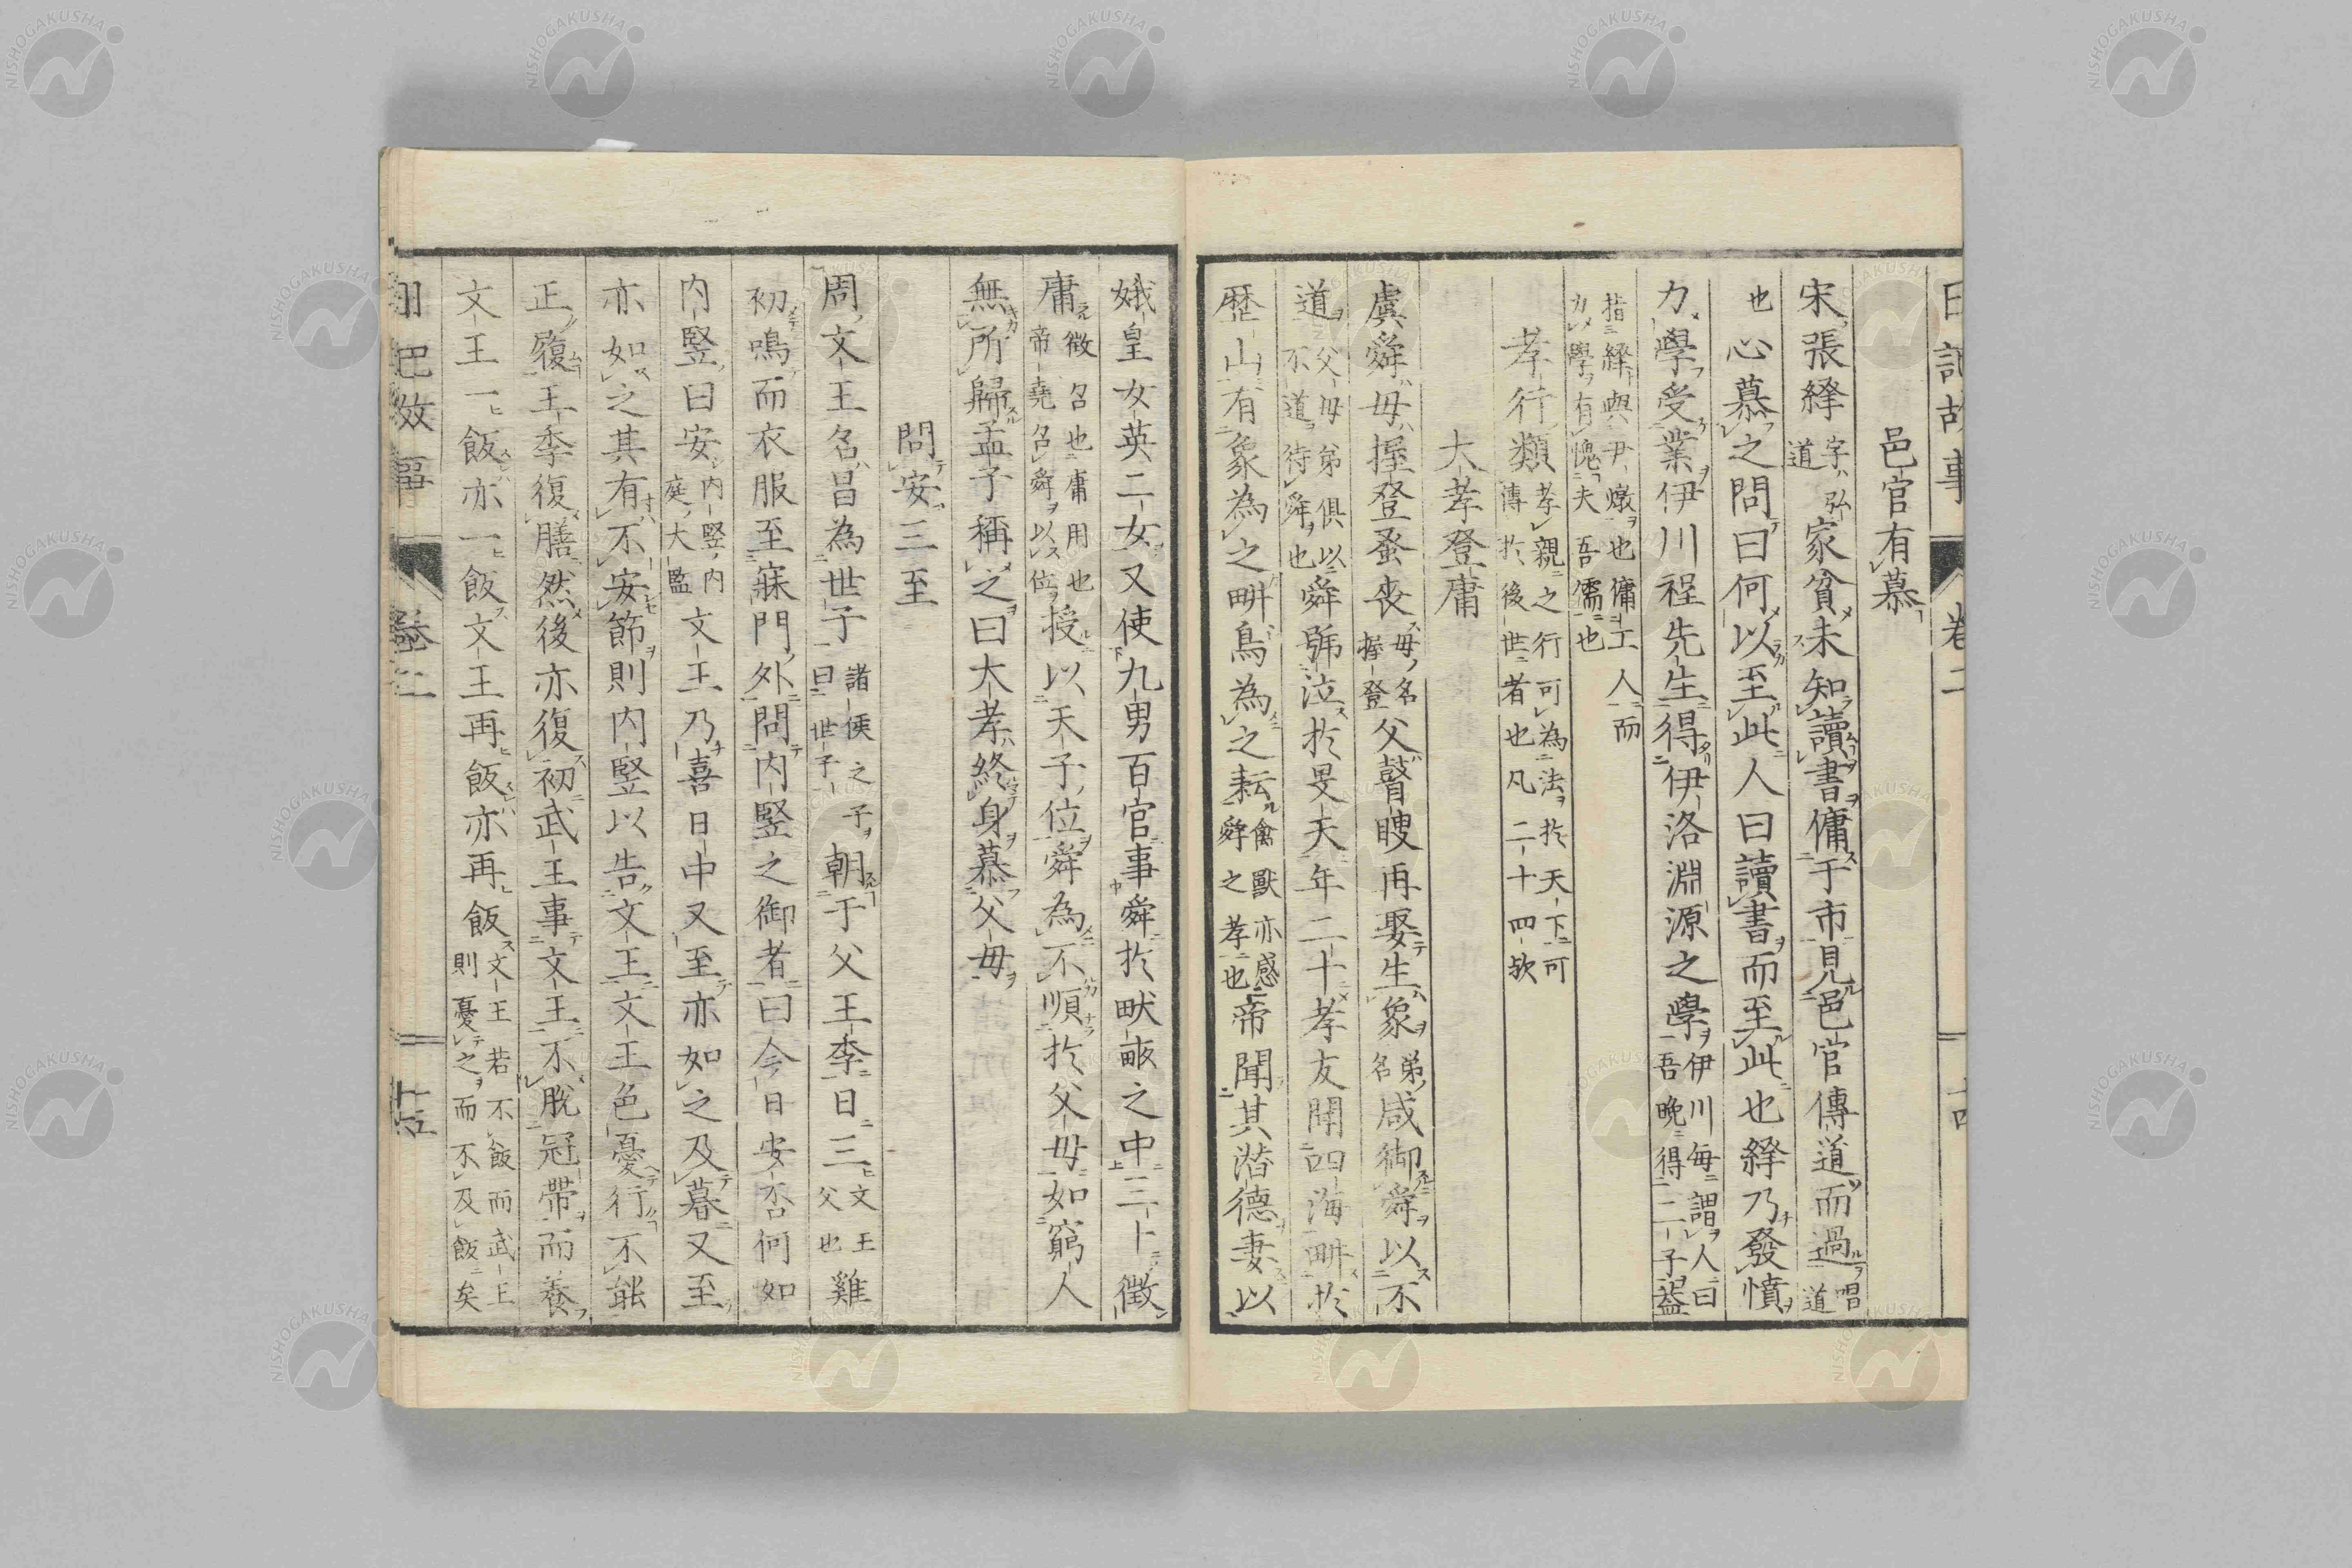 日記故事 卷二
邑官有慕
宋張繹字弘道家貧未知讀書傭于市見邑官傳道而過唱道
也心慕之問曰何以至此人曰讀書而至此也繹乃發憤
力學受業伊川程先生得伊洛淵源之學伊川每謂人曰吾晚得二子蓋
指繹與尹燉也傭工人而力學有愧夫吾儒也
孝行類孝親之行可為法於天下可傳於後世者也凡二十四款
大孝登庸
虞舜母握登蚤喪母名握登父瞽瞍再娶生象弟名咸御舜以不
道父母弟俱以不道待舜也舜號泣於旻天年二十孝友聞四海畊於
歷山有象為之畊鳥為之耘禽獸亦感舜之孝也帝聞其潛德妻以
娥皇女英二女又使九男百官事舜於畎畝之中三十徵
庸徵召也庸用也帝堯召舜以位授以天子位舜為不順於父母如窮人
無所歸孟子稱之曰大孝終身慕父母
問安三至
周文王名昌為世子諸侯之子曰世子朝于父王季日三文王父也雞
初鳴而衣服至寐門外問內竪之御者曰今日安否何如
內竪曰安內竪內庭大監文王乃喜日中又至亦如之及暮又至
亦如之其有不安節則內竪以告文王文王色憂行不能
正履王季復膳然後亦復初武王事文王不脫冠帶而養
文王一飯亦一飯文王再飯亦再飯文王若不飯而武王則憂之而不及飯矣